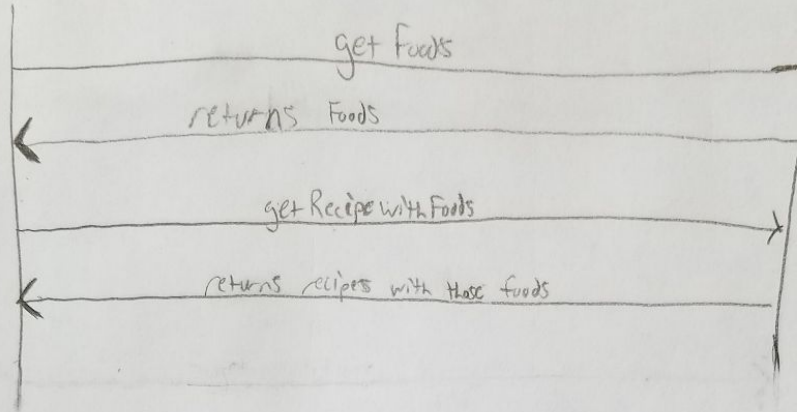 get Foods
returns Foods
get Recipe with Foods
returns recipes with those foods